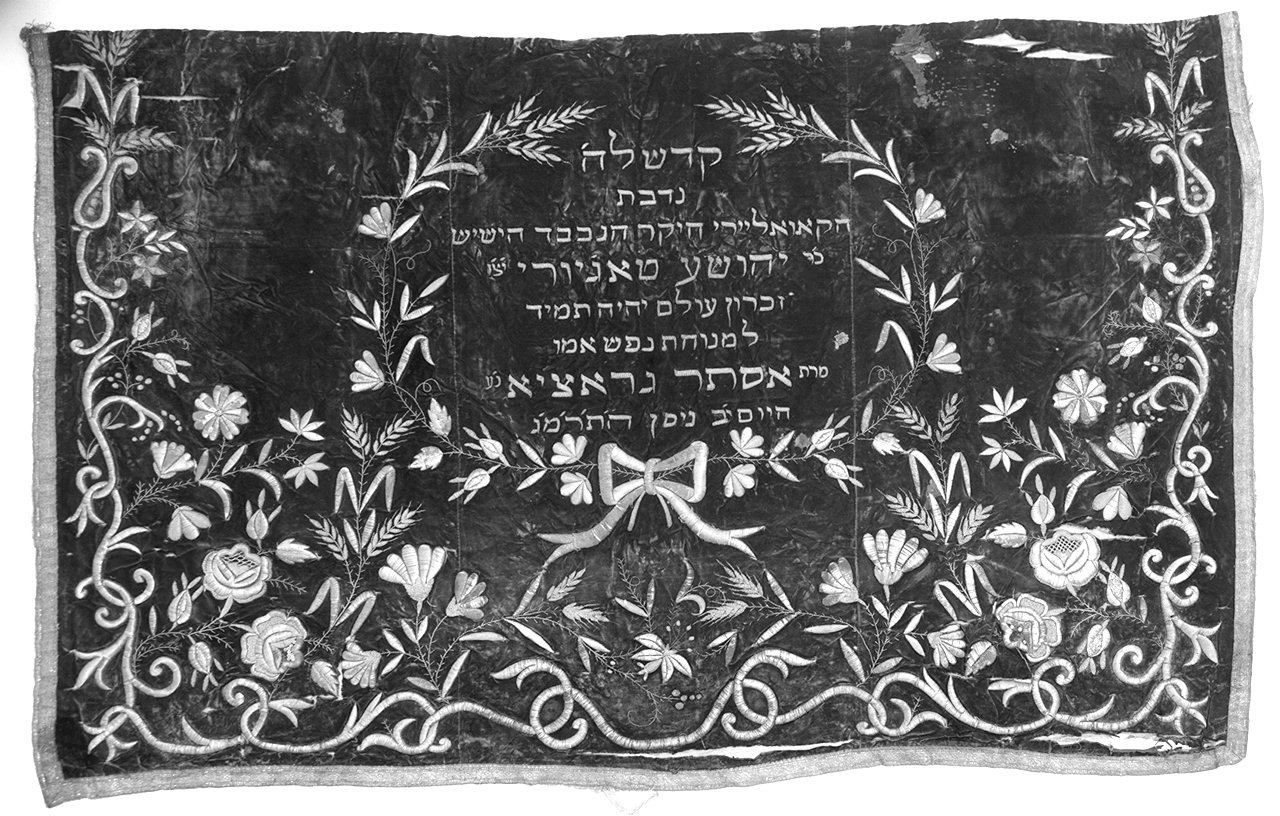 קדש לה'
נדבת
הקאואליירי היקר הנכבד הישיש
כ"י יהושע טאניורי יצ"ו
זכרון עולם יהיה תמיד
למנוחת נפש אמו
מרת אסתר גראציא נ"ע
היום י"ב ניסן התרמ"ג